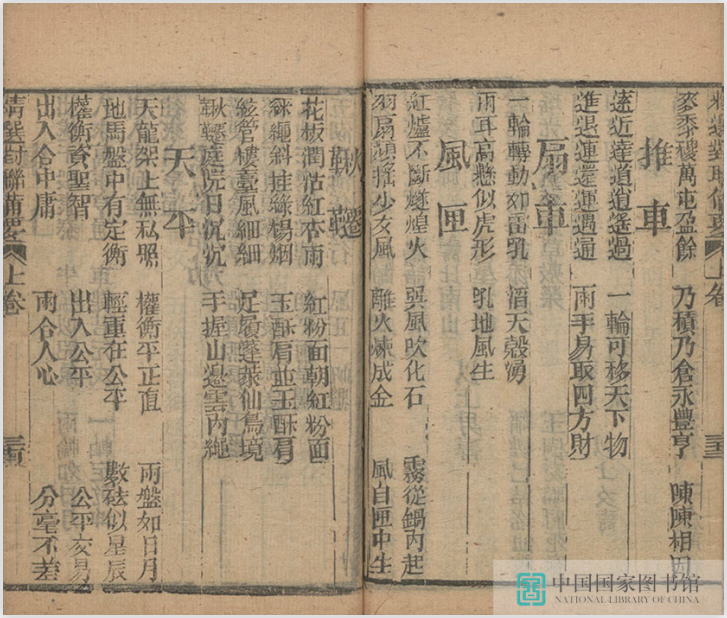 麥黍穰萬屯盈餘 乃積乃倉永豐亨 陳陳相因
推車
遠近達道逍遙過 一輪可移天下物
進退運連還遇通 兩手易取四方財
扇車
一輪轉動如雷乳 滔天穀湧
兩耳高懸似虎形 乳地風生
風匣
紅爐不斷燧煌火 巽風吹化石 霧從鍋內起
羽扇頻搖少女風 離火煉成金 風自匣中生
鞦韆
花板潤沾紅杏雨 紅粉面朝紅粉面
綵繩斜挂綠楊烟 玉酥肩並玉酥肩
絃管樓臺風細細 足履蓬萊仙島境
鞦韆庭院日沉沉 手握山邊雲內繩
天平
天龍架上無私照 權衡平正直 兩盤如日月
地馬盤中有定衡 輕重在公平 數砝似星辰
權衡資聖智 出入公平 公平交易
出入合中庸 兩合人心 分毫不差
對聯備要 上卷
中国国家图书馆
NATIONAL LIBRARY OF CHINA